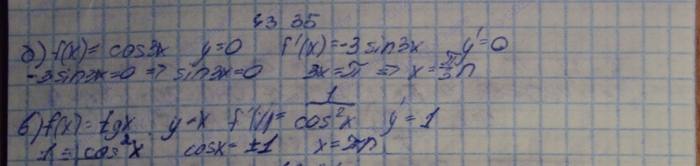 43 35
б) f(x) = cos3x y=0 f'(x)=-3 sin3x y'=0
-3sin3x=0 => sin3x=0 3x=π => x=π/3 n
в) f(x)=tgx y=x f'()= 1/cos²x y'=1
1=cos²x cosx=±1 x=πn